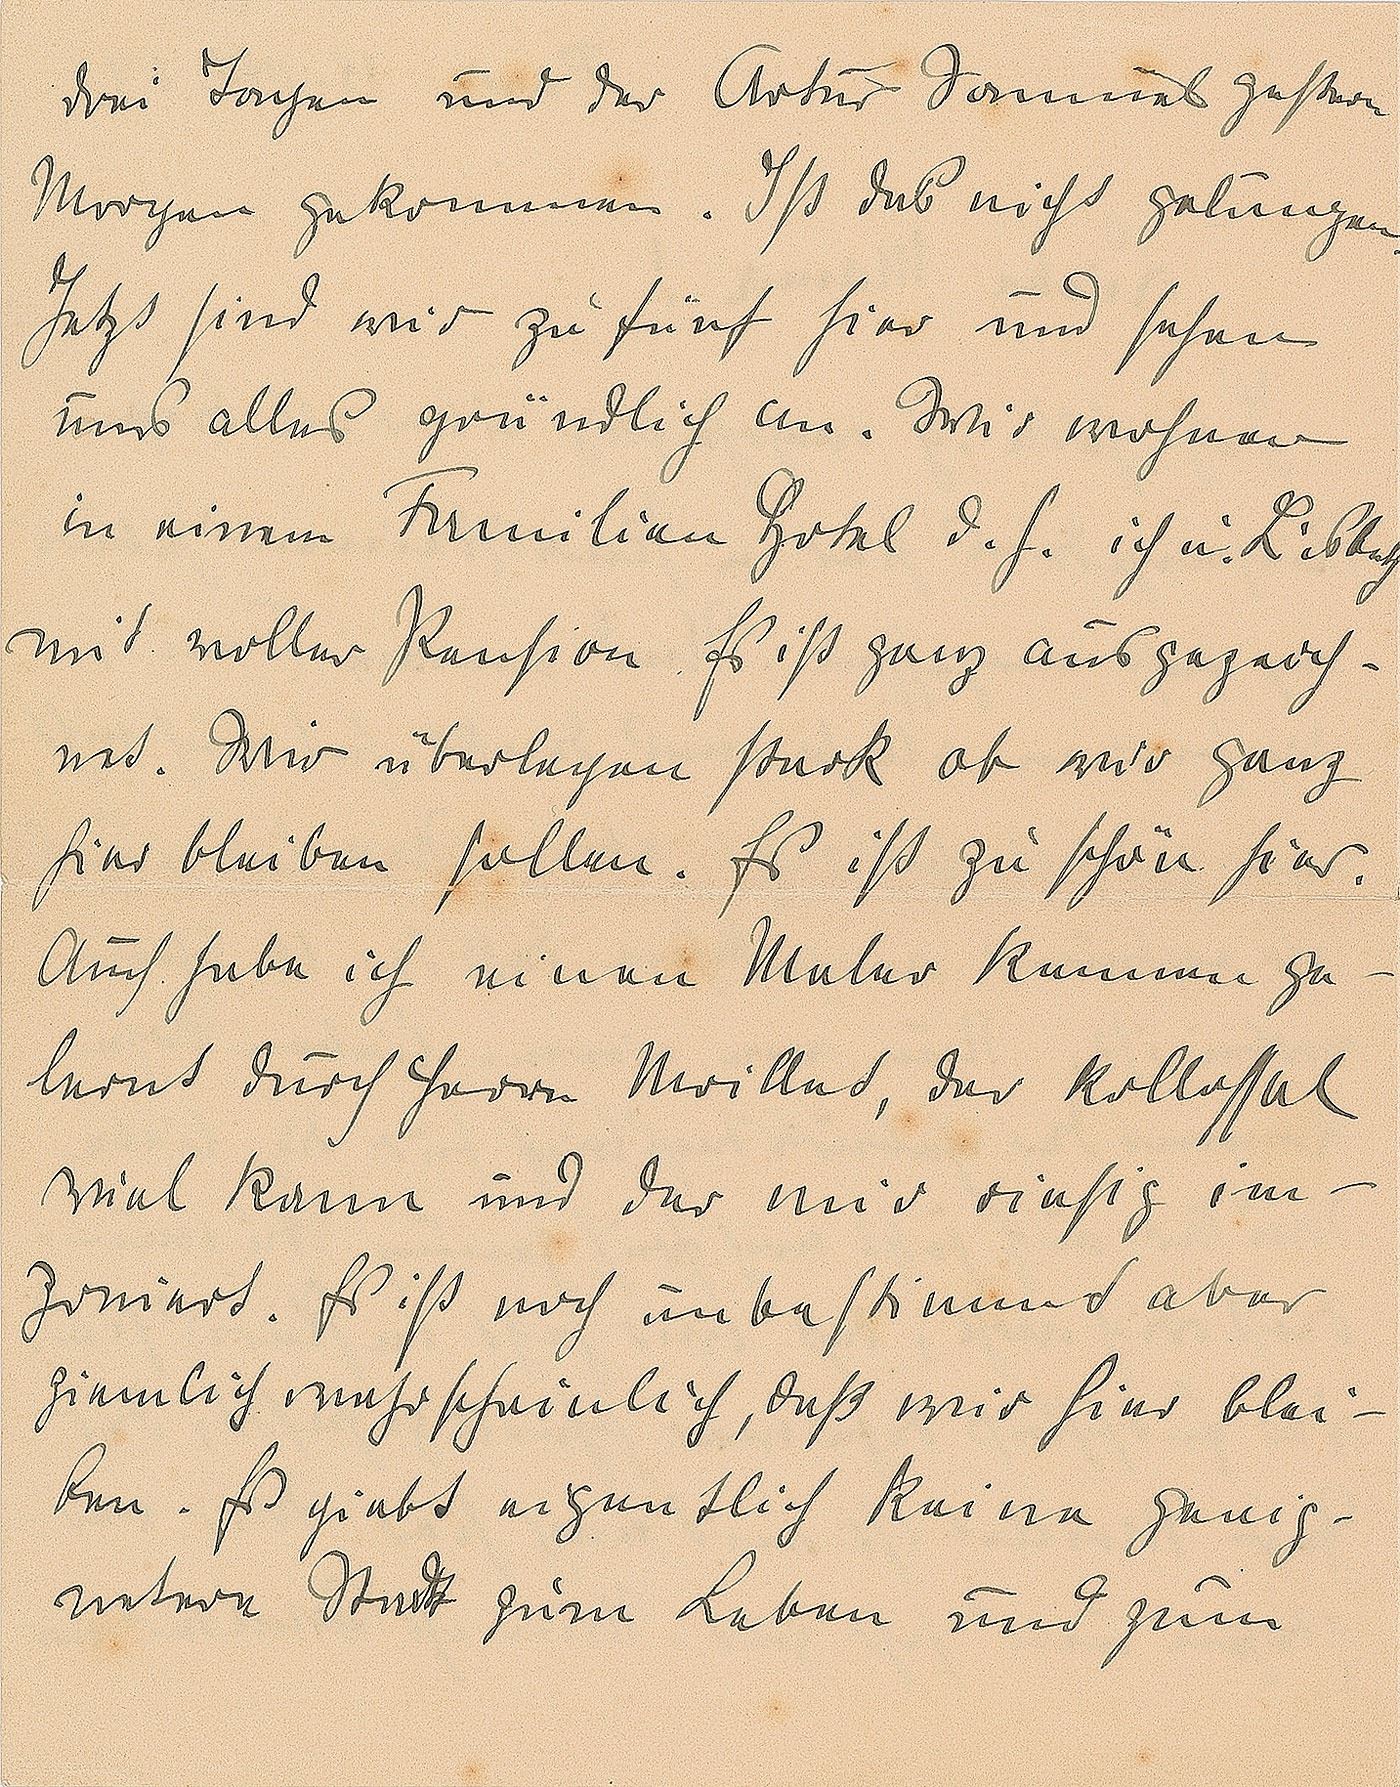 drei Tagen und der Artur Samues gestern
Morgen gekommen. Ist das nicht gelungen.
Jetzt sind wir zu fünf hier und sehen
uns alles gründlich an. Wir wohnen
in einem Familien Hotel d. h. ich u. Lisbeth
mit voller Pension. Es ist ganz ausgezeich-
net. Wir überlegen stark ob wir ganz
hier bleiben sollen. Es ist zu schön hier.
Auch habe ich einen Maler kennen ge-
lernt durch Herrn der kollossal
viel kann und der mir riesig im-
poniert. Es ist noch unbestimmt aber
ziemlich wahrscheinlich, daß wir hier blei-
ben. Es giebt eigentlich keine geeig-
netere Stadt zum Leben und zum